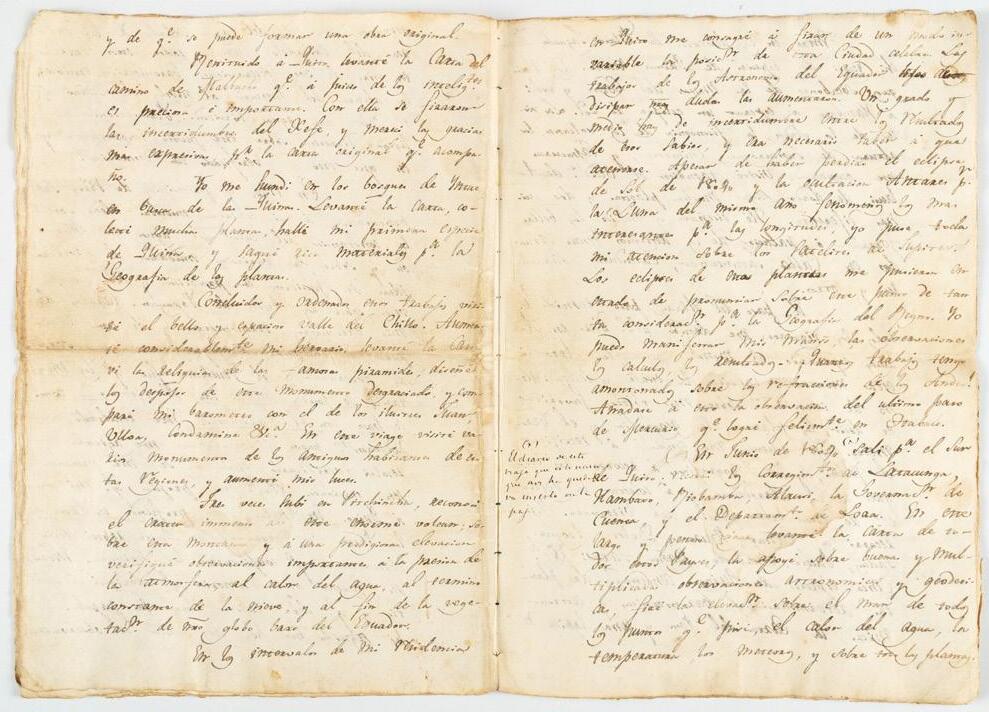 y de qe. se puede formar una obra original.
Restituido á Quito levanté la Carta del
camino de Malbucho qe. á juicio de los inteligtes.
es preciosa é importante. Con ella se fixaron
las incertidumbres del Xefe, y merecí las gracias
mas expresivas pr. la carta original qe. acompa-
ño.
Yo me hundi en los bosques de Intac
en busca de las Quinas. Levanté la carta, co-
lecté muchas plantas, hallé mi primera especie
de Quina y saqué ricos materiales pa. la
Geografia de las plantas.
Concluidos y ordenados estos trabajos visi-
té el bello y espacioso valle de Chillo. Aumen-
té considerablemte. mi hervario, levanté la Carta
vi las reliquias de las famosas piramides, diseñé
los despojos de este monumento desgraciado, y com-
paré mi barometro con el de los ilustres Juan,
Ulloa, Condamine &c.a En este viage visité va-
rios monumentos de los antiguos habitantes de es-
tas regiones, y aumenté mis luces.
Tres veces subi en Pichincha, reconocí
el crater inmenso de este enorme volcan, so-
bre esta montaña y á una prodigiosa elevacion
verifiqué observaciones importantes á la presion de
la atmosfera, al calor del agua, al termino
constante de la nieve, y al fin de la vege-
tacn. de nro globo baxo del Equador.
En los intervalos de mi residencia
en Quito me consagré á fixar de un modo in-
variable la posicn. de esta Ciudad celebre. Los
trabajos de los Astronomos del Equador lejos de
disipar nras dudas las aumentaron. Un grado y
medio hay de incertidumbre entre los resultados
de esos sabios, y era necesario saber á qué
atenerse. Apesar de haber perdido el eclipse
de Sol de 1804 y la ocultacion Antares pr.
la Luna del mismo año, fenomenos los mas
interesantes pa. las longitudes, yo puse toda
mi atencion sobre los satelites de Jupiter.
Los eclipses de estos planetas me pusieron en
estado de pronunciar sobre este punto de tan
ta consideracn. pa. la Geografia del Reyno. Yo
puedo manifestar mis las observaciones
los calculos, los resultados. Quantos trabajos tengo
amontonados sobre las refracciones de los Andes!
Añadaré á esto la observacion del ultimo paso
de Mercurio qe. logré felizmte. en Ibarra.
En Junio de 1804 (1) sali pa. el Sur
de Quito. Visité los Corregimtos. de Latacunga
Hambato, Riobamba, Alausí, la Governacn. de
Cuenca y el Departamto. de Loxa. En este
largo y penoso viage levanté la carta de to-
dos estos Payses, la apoyé sobre buenas y mul-
tiplicadas observaciones astronomicas y geodesi-
cas, fixé la elevacn. sobre el mar de todos
los puntos qe. pisé, el calor del agua, la
temperatura, los meteoros, y sobre todo las plantas.
(1)
El diario de este
viaje
que aun
se